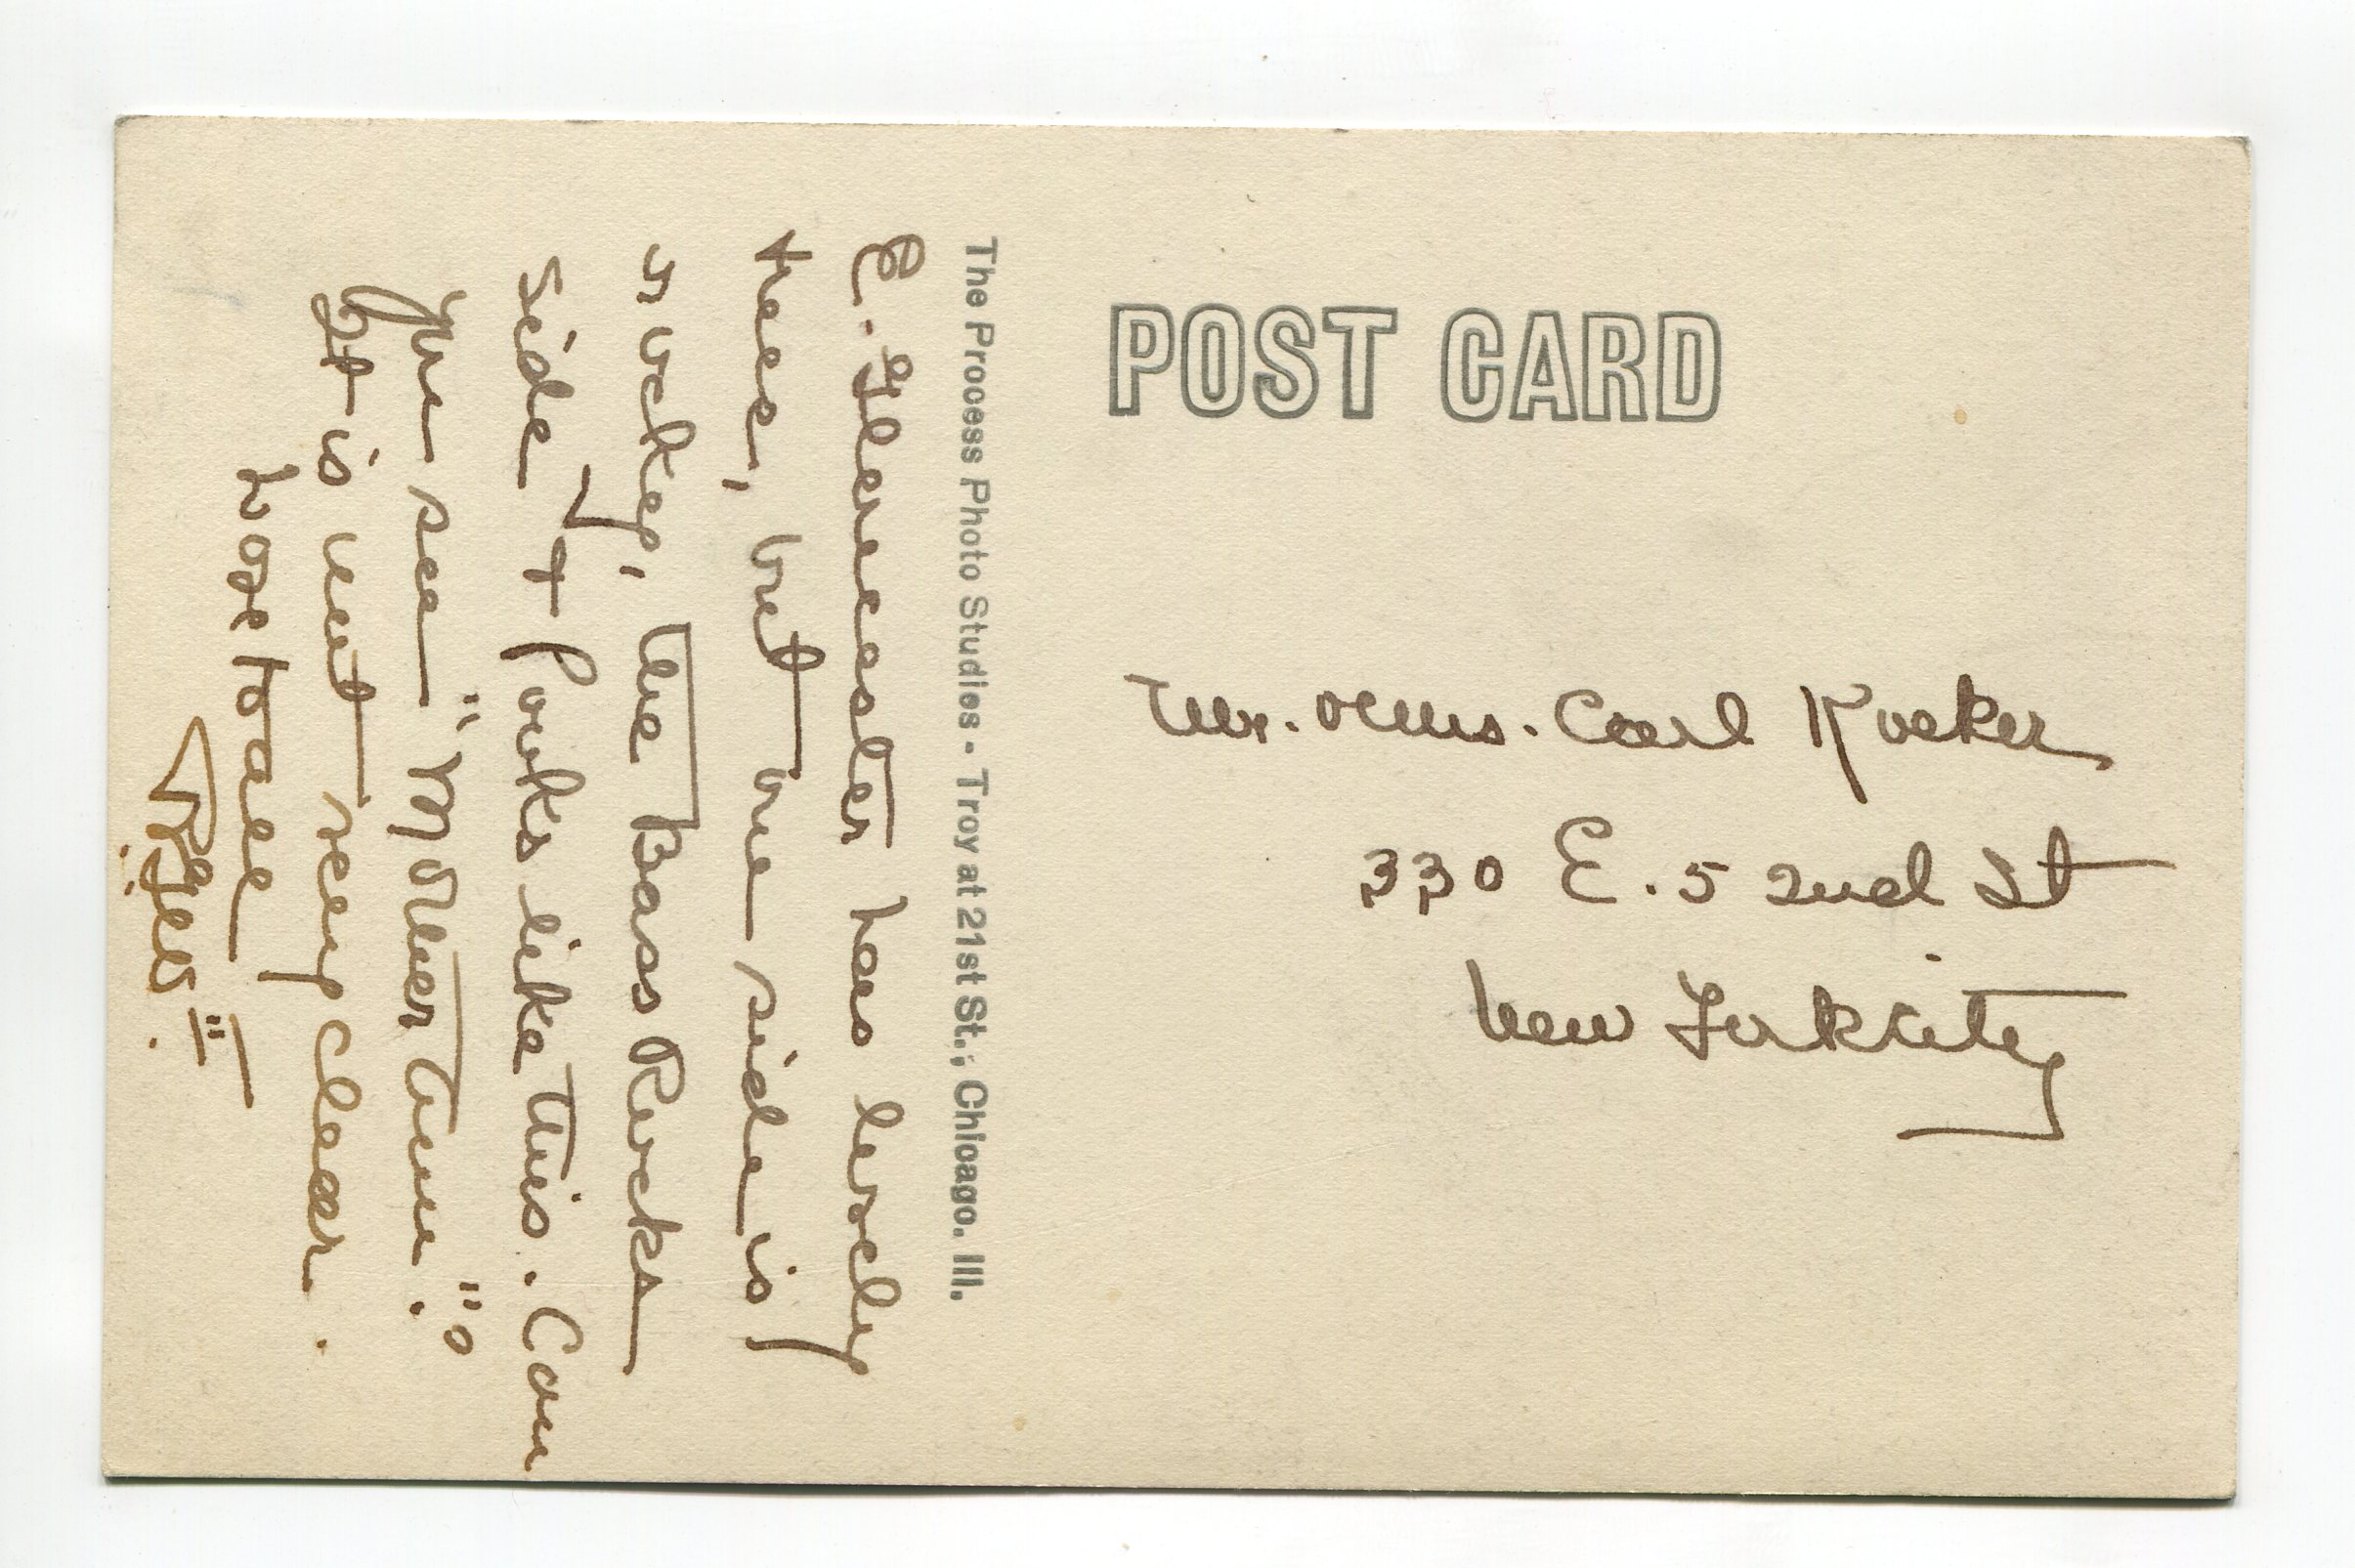 POST CARD
The Process Photo Studies - Troy at 21st St., Chicago. Ill.
E. Gloucester has lovely
trees, but one side is
rocky, the Bass Rocks
side & looks like this. Can
you see "Mother Ann."?
It is not very clear.
Love to all
Mr. & Mrs. Carl
330 E. 52nd St
New York City